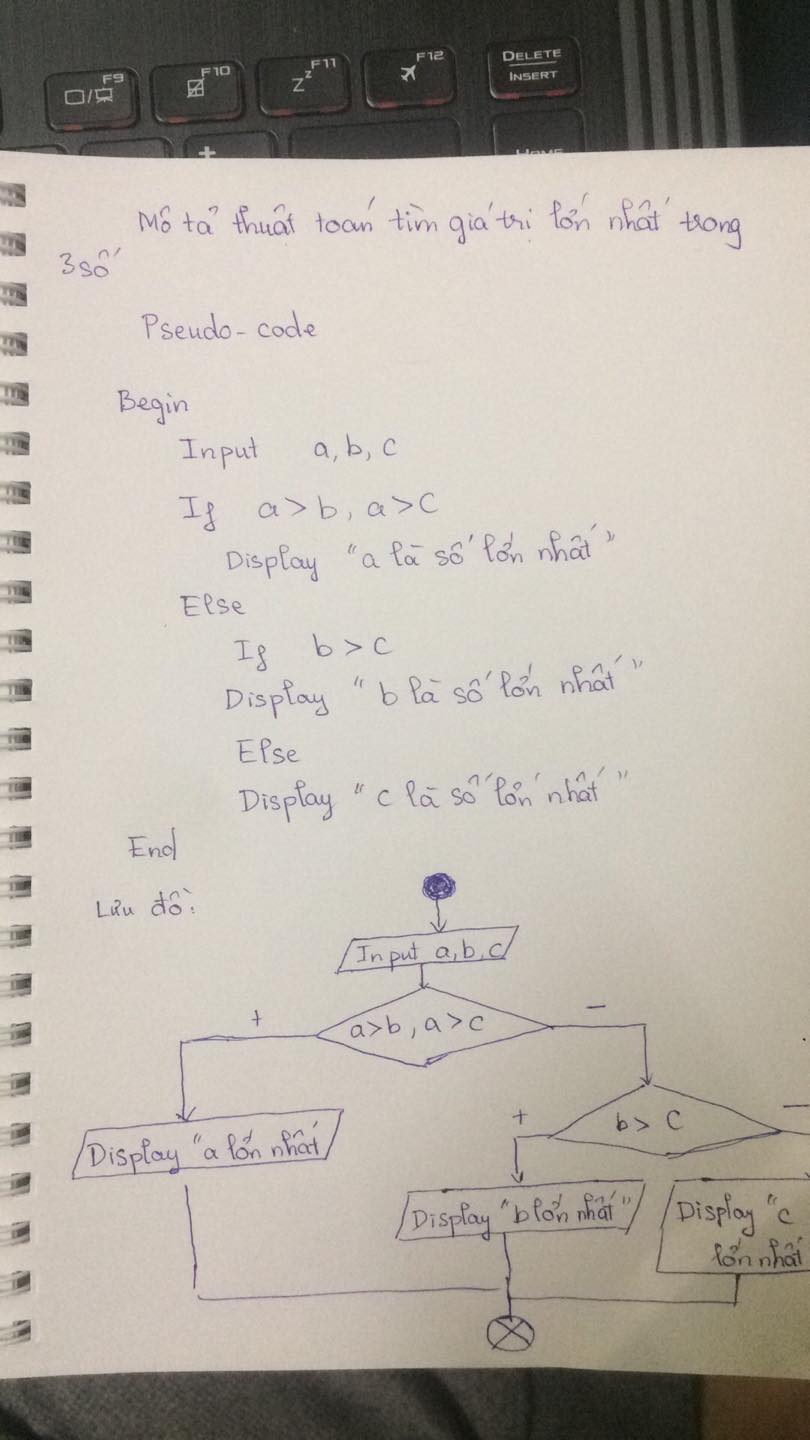 F9
F10
F11
F12
DELETE
INSERT
Zz
+
HOME
Mô tả thuật toán tìm giá trị lớn nhất trong
3 số
Pseudo-code
Begin
Input a, b, c
If a > b, a > c
Display "a là số lớn nhất"
Else
If b > c
Display "b là số lớn nhất"
Else
Display "c là số lớn nhất"
End
Lưu đồ:
Input a, b, c
+
a>b, a>c
−
Display "a lớn nhất
+
b > c
−
Display "b lớn nhất"
Display "c
lớn nhất